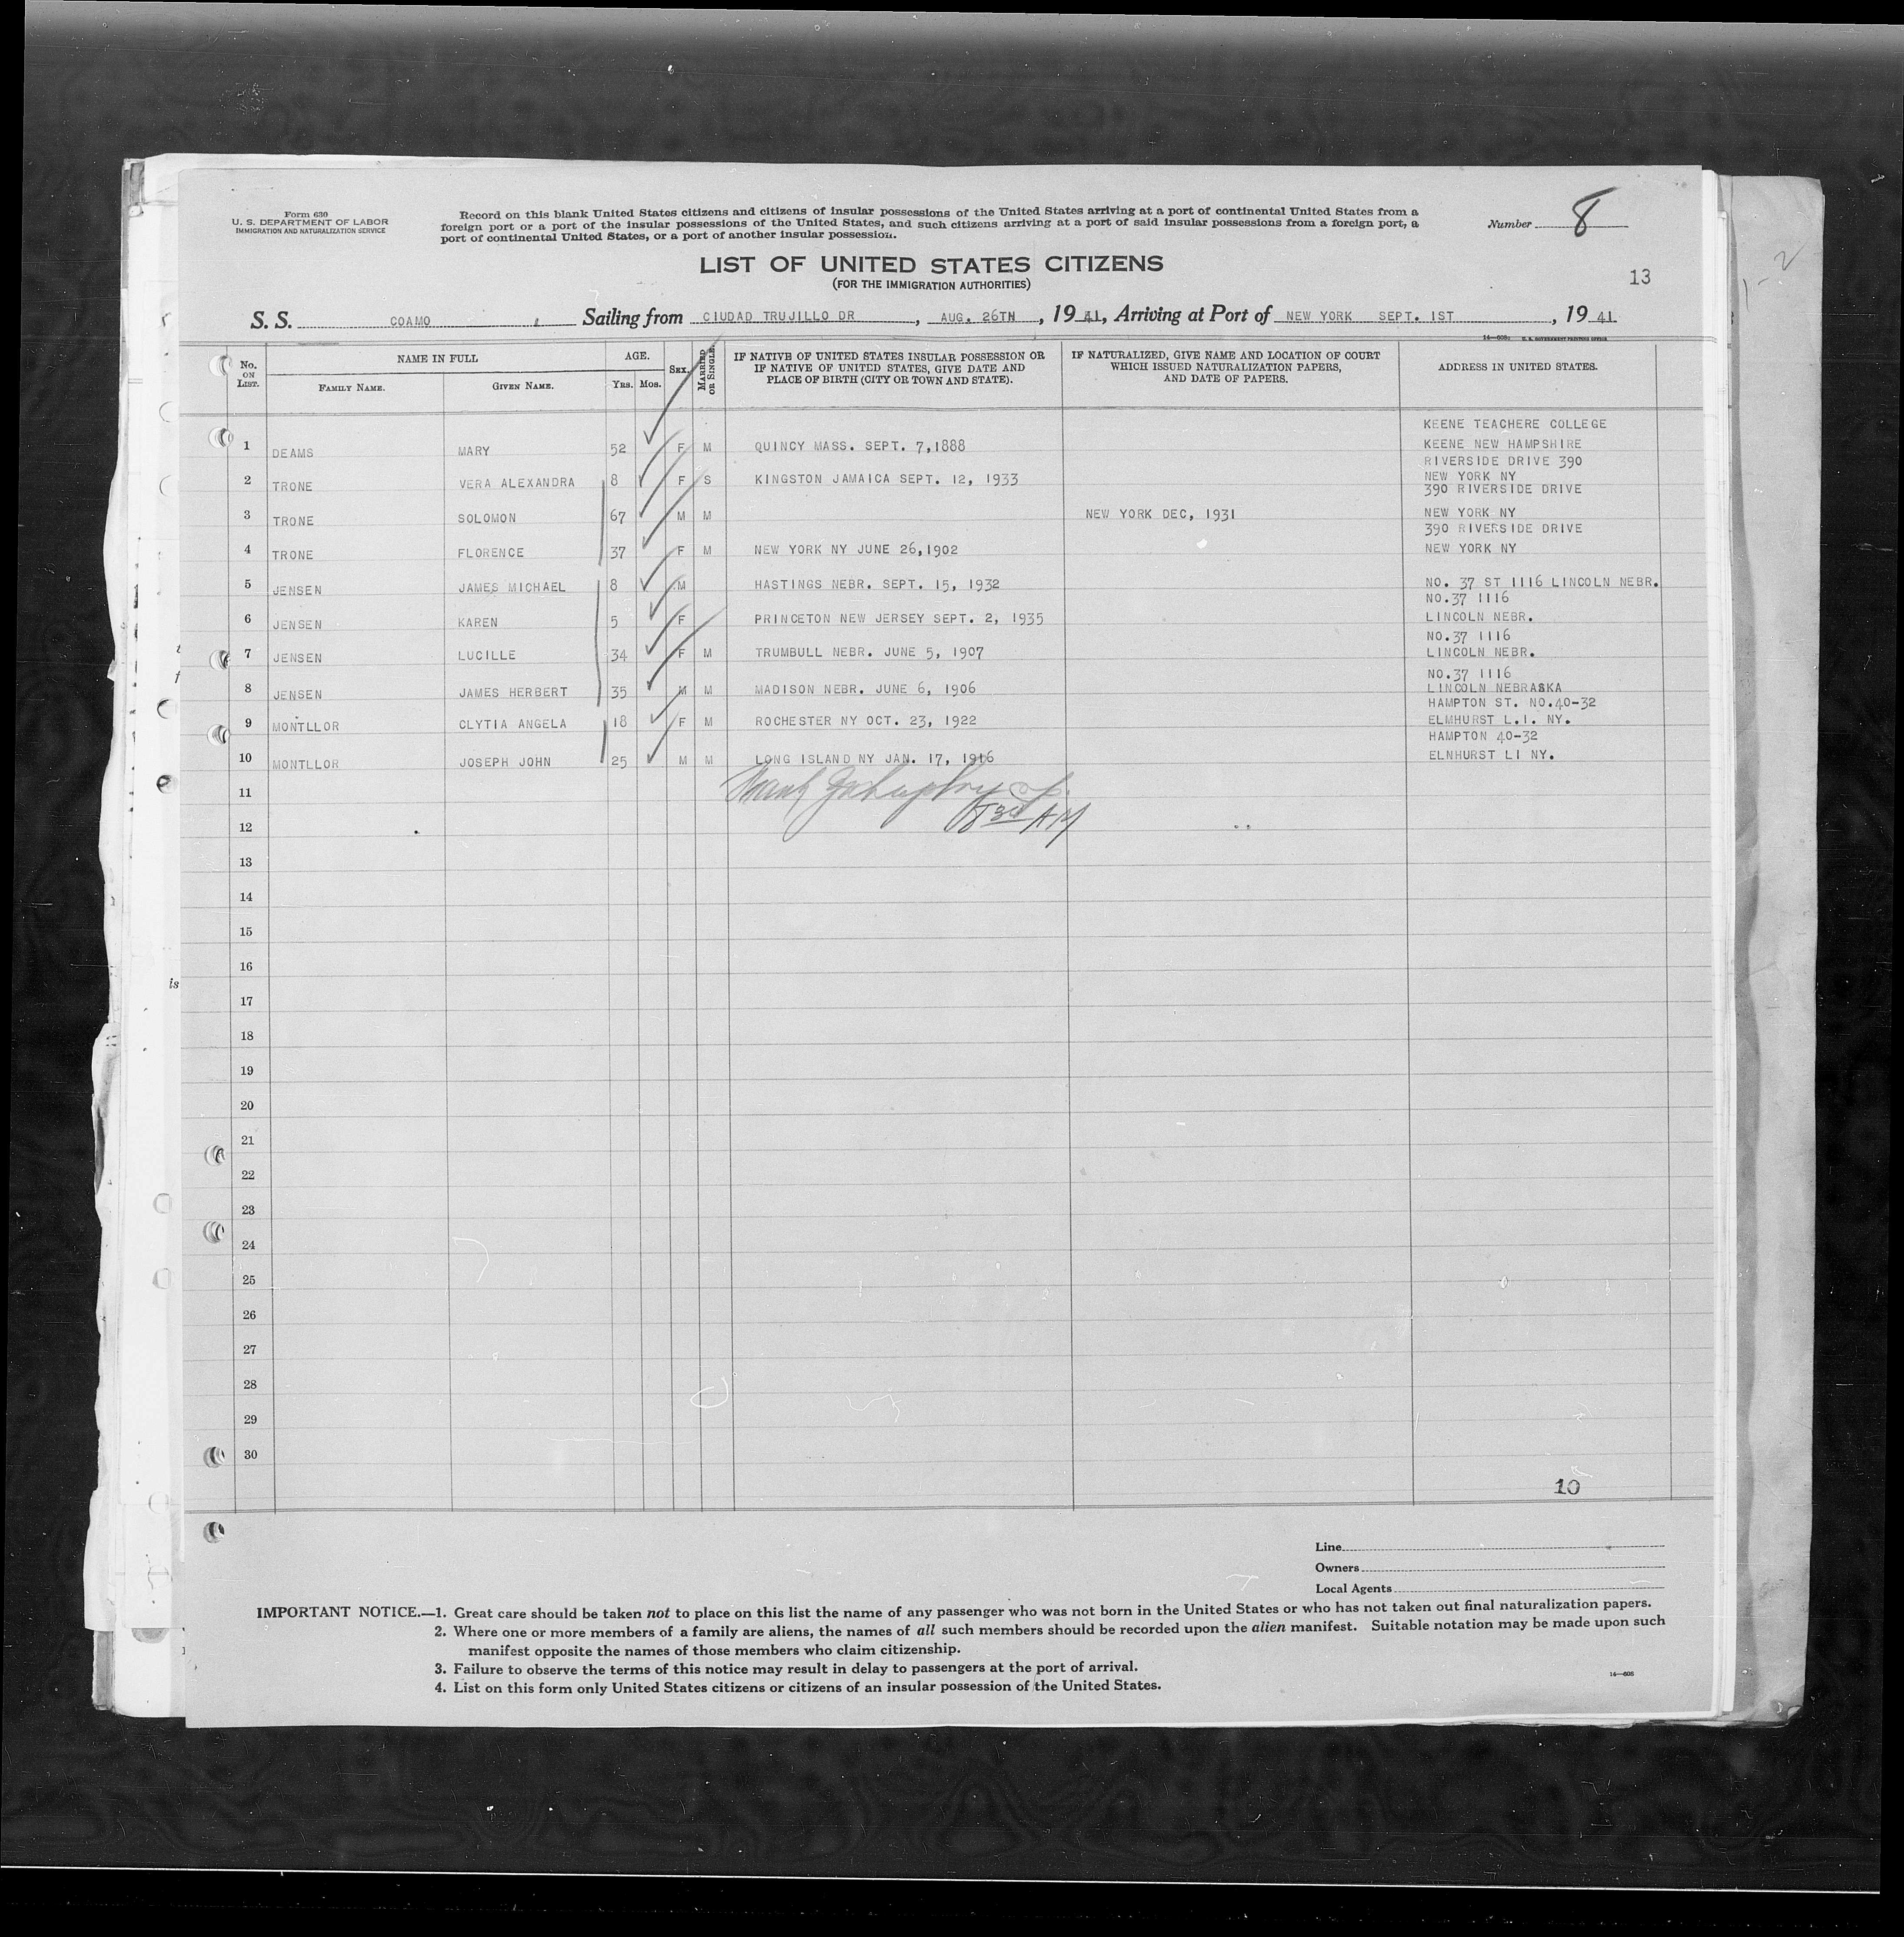 Form 630
U. S. DEPARTMENT OF LABOR
IMMIGRATION AND NATURALIZATION SERVICE
Record on this blank United States citizens and citizens of insular possessions of the United States arriving at a port of continental United States from a
foreign port or a port of the insular possessions of the United States, and such citizens arriving at a port of said insular possessions from a foreign port, a
port of continental United States, or a port of another insular possession.
Number 8
LIST OF UNITED STATES CITIZENS
(FOR THE IMMIGRATION AUTHORITIES)
13
1-2
S. S. COAMO, Sailing from CIUDAD TRUJILLO DR, AUG. 26TH, 1941, Arriving at Port of NEW YORK SEPT. 1ST, 1941
No. ON LIST.
NAME IN FULL
FAMILY NAME. GIVEN NAME.
AGE.
YRS. MOS.
SEX.
MARRIED OR SINGLE.
IF NATIVE OF UNITED STATES INSULAR POSSESSION OR
IF NATIVE OF UNITED STATES, GIVE DATE AND
PLACE OF BIRTH (CITY OR TOWN AND STATE).
IF NATURALIZED, GIVE NAME AND LOCATION OF COURT
WHICH ISSUED NATURALIZATION PAPERS,
AND DATE OF PAPERS.
ADDRESS IN UNITED STATES.
KEENE TEACHERE COLLEGE
1 DEAMS MARY 52 F M QUINCY MASS. SEPT. 7,1888 KEENE NEW HAMPSHIRE
RIVERSIDE DRIVE 390
2 TRONE VERA ALEXANDRA 8 F S KINGSTON JAMAICA SEPT. 12, 1933 NEW YORK NY
390 RIVERSIDE DRIVE
3 TRONE SOLOMON 67 M M NEW YORK DEC, 1931 NEW YORK NY
390 RIVERSIDE DRIVE
4 TRONE FLORENCE 37 F M NEW YORK NY JUNE 26,1902 NEW YORK NY
5 JENSEN JAMES MICHAEL 8 M HASTINGS NEBR. SEPT. 15, 1932 NO. 37 ST 1116 LINCOLN NEBR.
NO.37 1116
6 JENSEN KAREN 5 F PRINCETON NEW JERSEY SEPT. 2, 1935 LINCOLN NEBR.
NO.37 1116
7 JENSEN LUCILLE 34 F M TRUMBULL NEBR. JUNE 5, 1907 LINCOLN NEBR.
NO.37 1116
8 JENSEN JAMES HERBERT 35 M M MADISON NEBR. JUNE 6, 1906 LINCOLN NEBRASKA
HAMPTON ST. NO.40-32
9 MONTLLOR CLYTIA ANGELA 18 F M ROCHESTER NY OCT. 23, 1922 ELMHURST L.I. NY.
HAMPTON 40-32
10 MONTLLOR JOSEPH JOHN 25 M M LONG ISLAND NY JAN. 17, 1916 ELNHURST LI NY.
11
12
13
14
15
16
17
18
19
20
21
22
23
24
25
26
27
28
29
30
10
Line
Owners
Local Agents
IMPORTANT NOTICE.—1. Great care should be taken not to place on this list the name of any passenger who was not born in the United States or who has not taken out final naturalization papers.
2. Where one or more members of a family are aliens, the names of all such members should be recorded upon the alien manifest. Suitable notation may be made upon such
manifest opposite the names of those members who claim citizenship.
3. Failure to observe the terms of this notice may result in delay to passengers at the port of arrival.
4. List on this form only United States citizens or citizens of an insular possession of the United States.